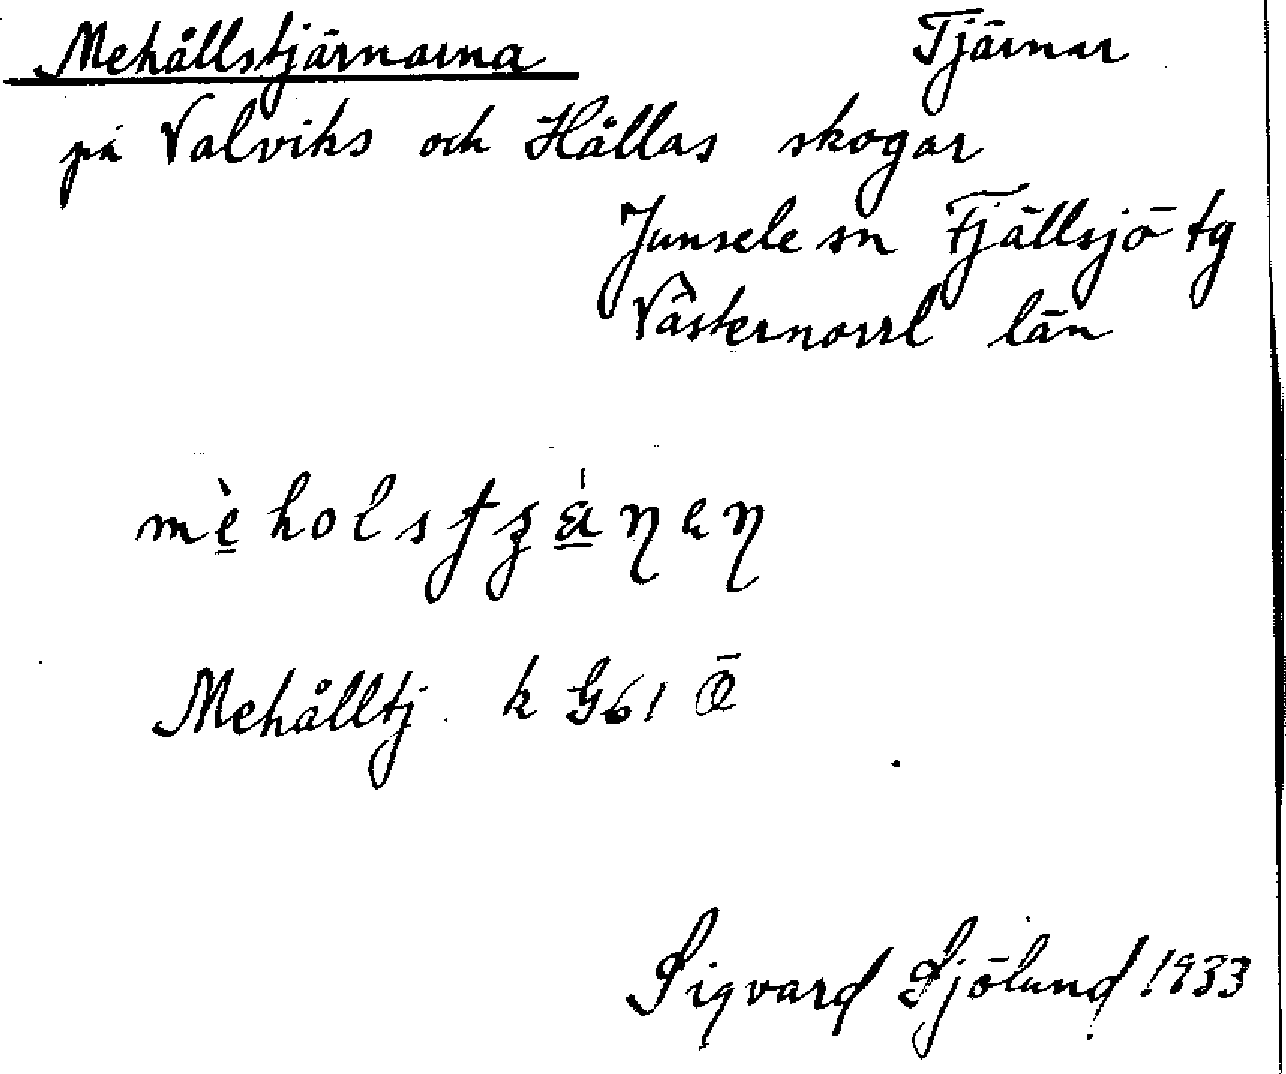 Mehållstjärnarna Tjärnar
på Valviks och Hållas skogar
Junsele sn Fjällsjö tg
Västernorrl län
Mehålltj. k G61 Ö
Sigvard Sjölund 1933